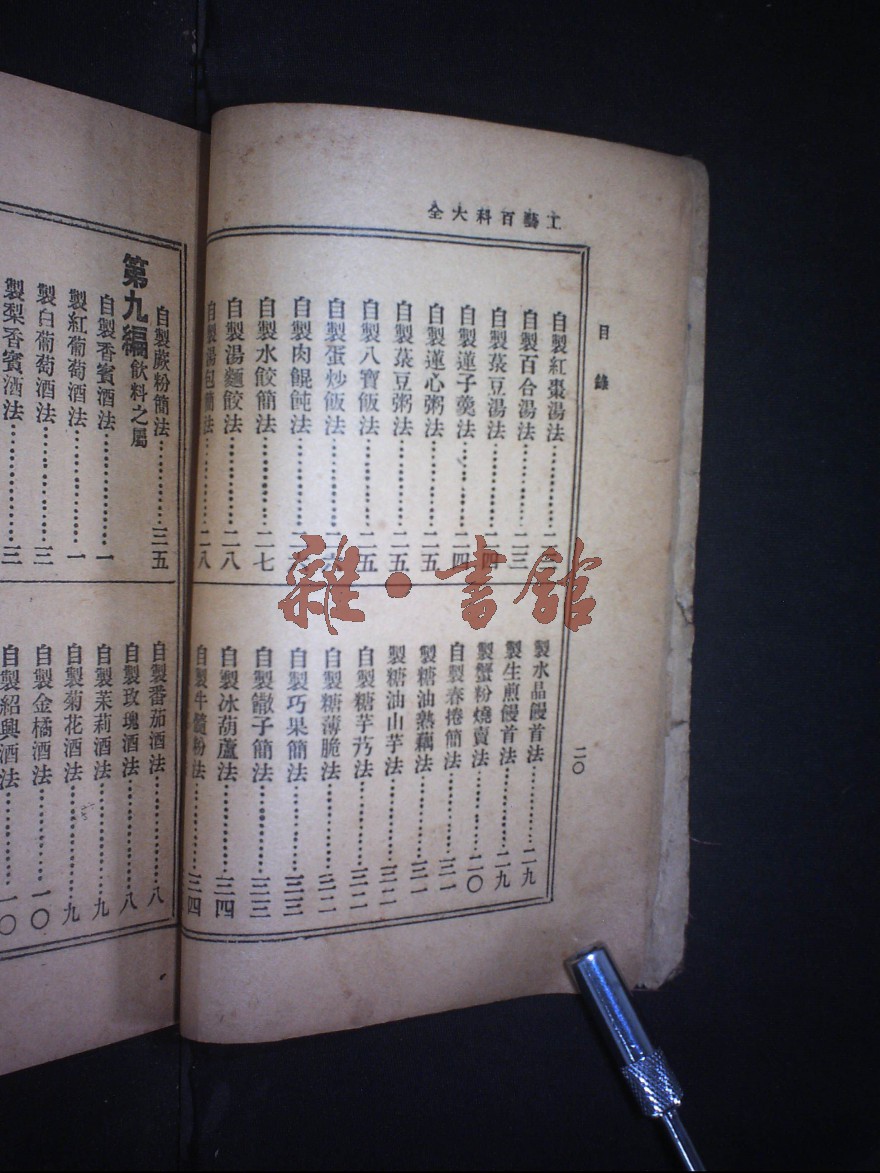 工藝百科大全
目錄
二〇
自製紅棗湯法
自製百合湯法…………二三
自製菉豆湯法…………二四
自製蓮子羹法…………二四
自製蓮心粥法…………二五
自製菉豆粥法…………二五
自製八寶飯法…………二五
自製蛋炒飯法…………二六
自製肉餛飩法
自製水餃簡法…………二七
自製湯麵餃法…………二八
自製湯包簡法…………二八
製水晶饅首法…………二九
製生煎饅首法…………二九
製蟹粉燒賣法…………二〇
自製春捲簡法…………三一
製糖油熟藕法…………三一
製糖油山芋法…………三二
自製糖芋艿法…………三二
自製糖薄脆法…………三二
自製巧果簡法…………三三
自製饊子簡法…………三三
自製冰葫蘆法…………三四
自製牛髓粉法…………三四
自製蕨粉簡法…………三五
第九編 飲料之屬
自製香賓酒法…………一
製紅葡萄酒法…………一
製白葡萄酒法…………三
製梨香賓酒法…………三
自製番茄酒法…………八
自製玫瑰酒法…………八
自製茉莉酒法…………九
自製菊花酒法…………九
自製金橘酒法…………一〇
自製紹興酒法…………一〇
雜·書館